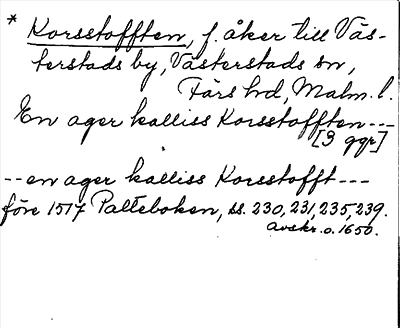 * Korsstofften, f. åker till Väs-
terstads by, Västerstads sn,
Färs hd, Malm. l.
En ager kalliss Korsstofften ---
[3 ggr]
-- en ager kalliss Korsstofft ---
före 1517 Palteboken, ss. 230, 231, 235, 239.
avskr. o. 1650.